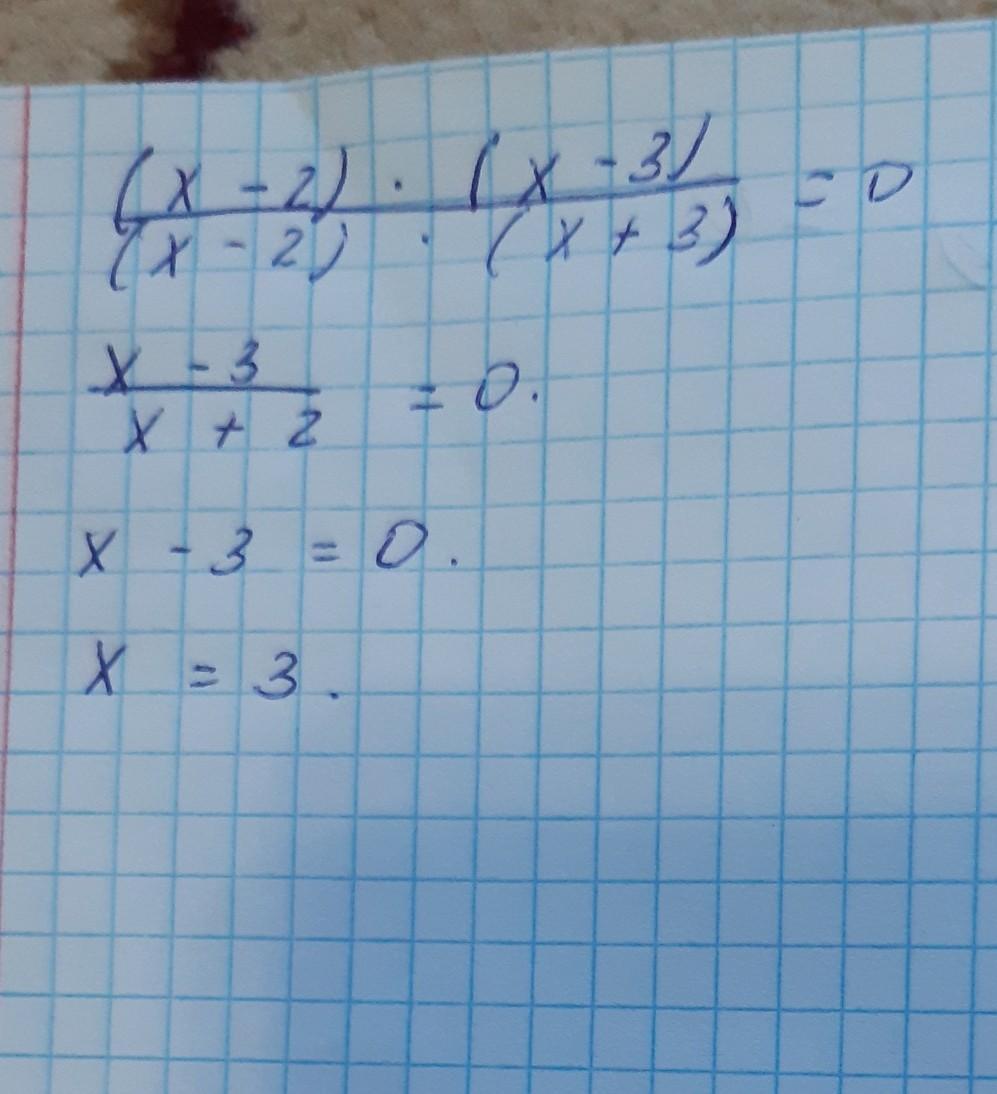 (x - 2) · (x - 3)
(x - 2) · (x + 3) = 0
x - 3
x + 2 = 0.
x - 3 = 0.
x = 3.